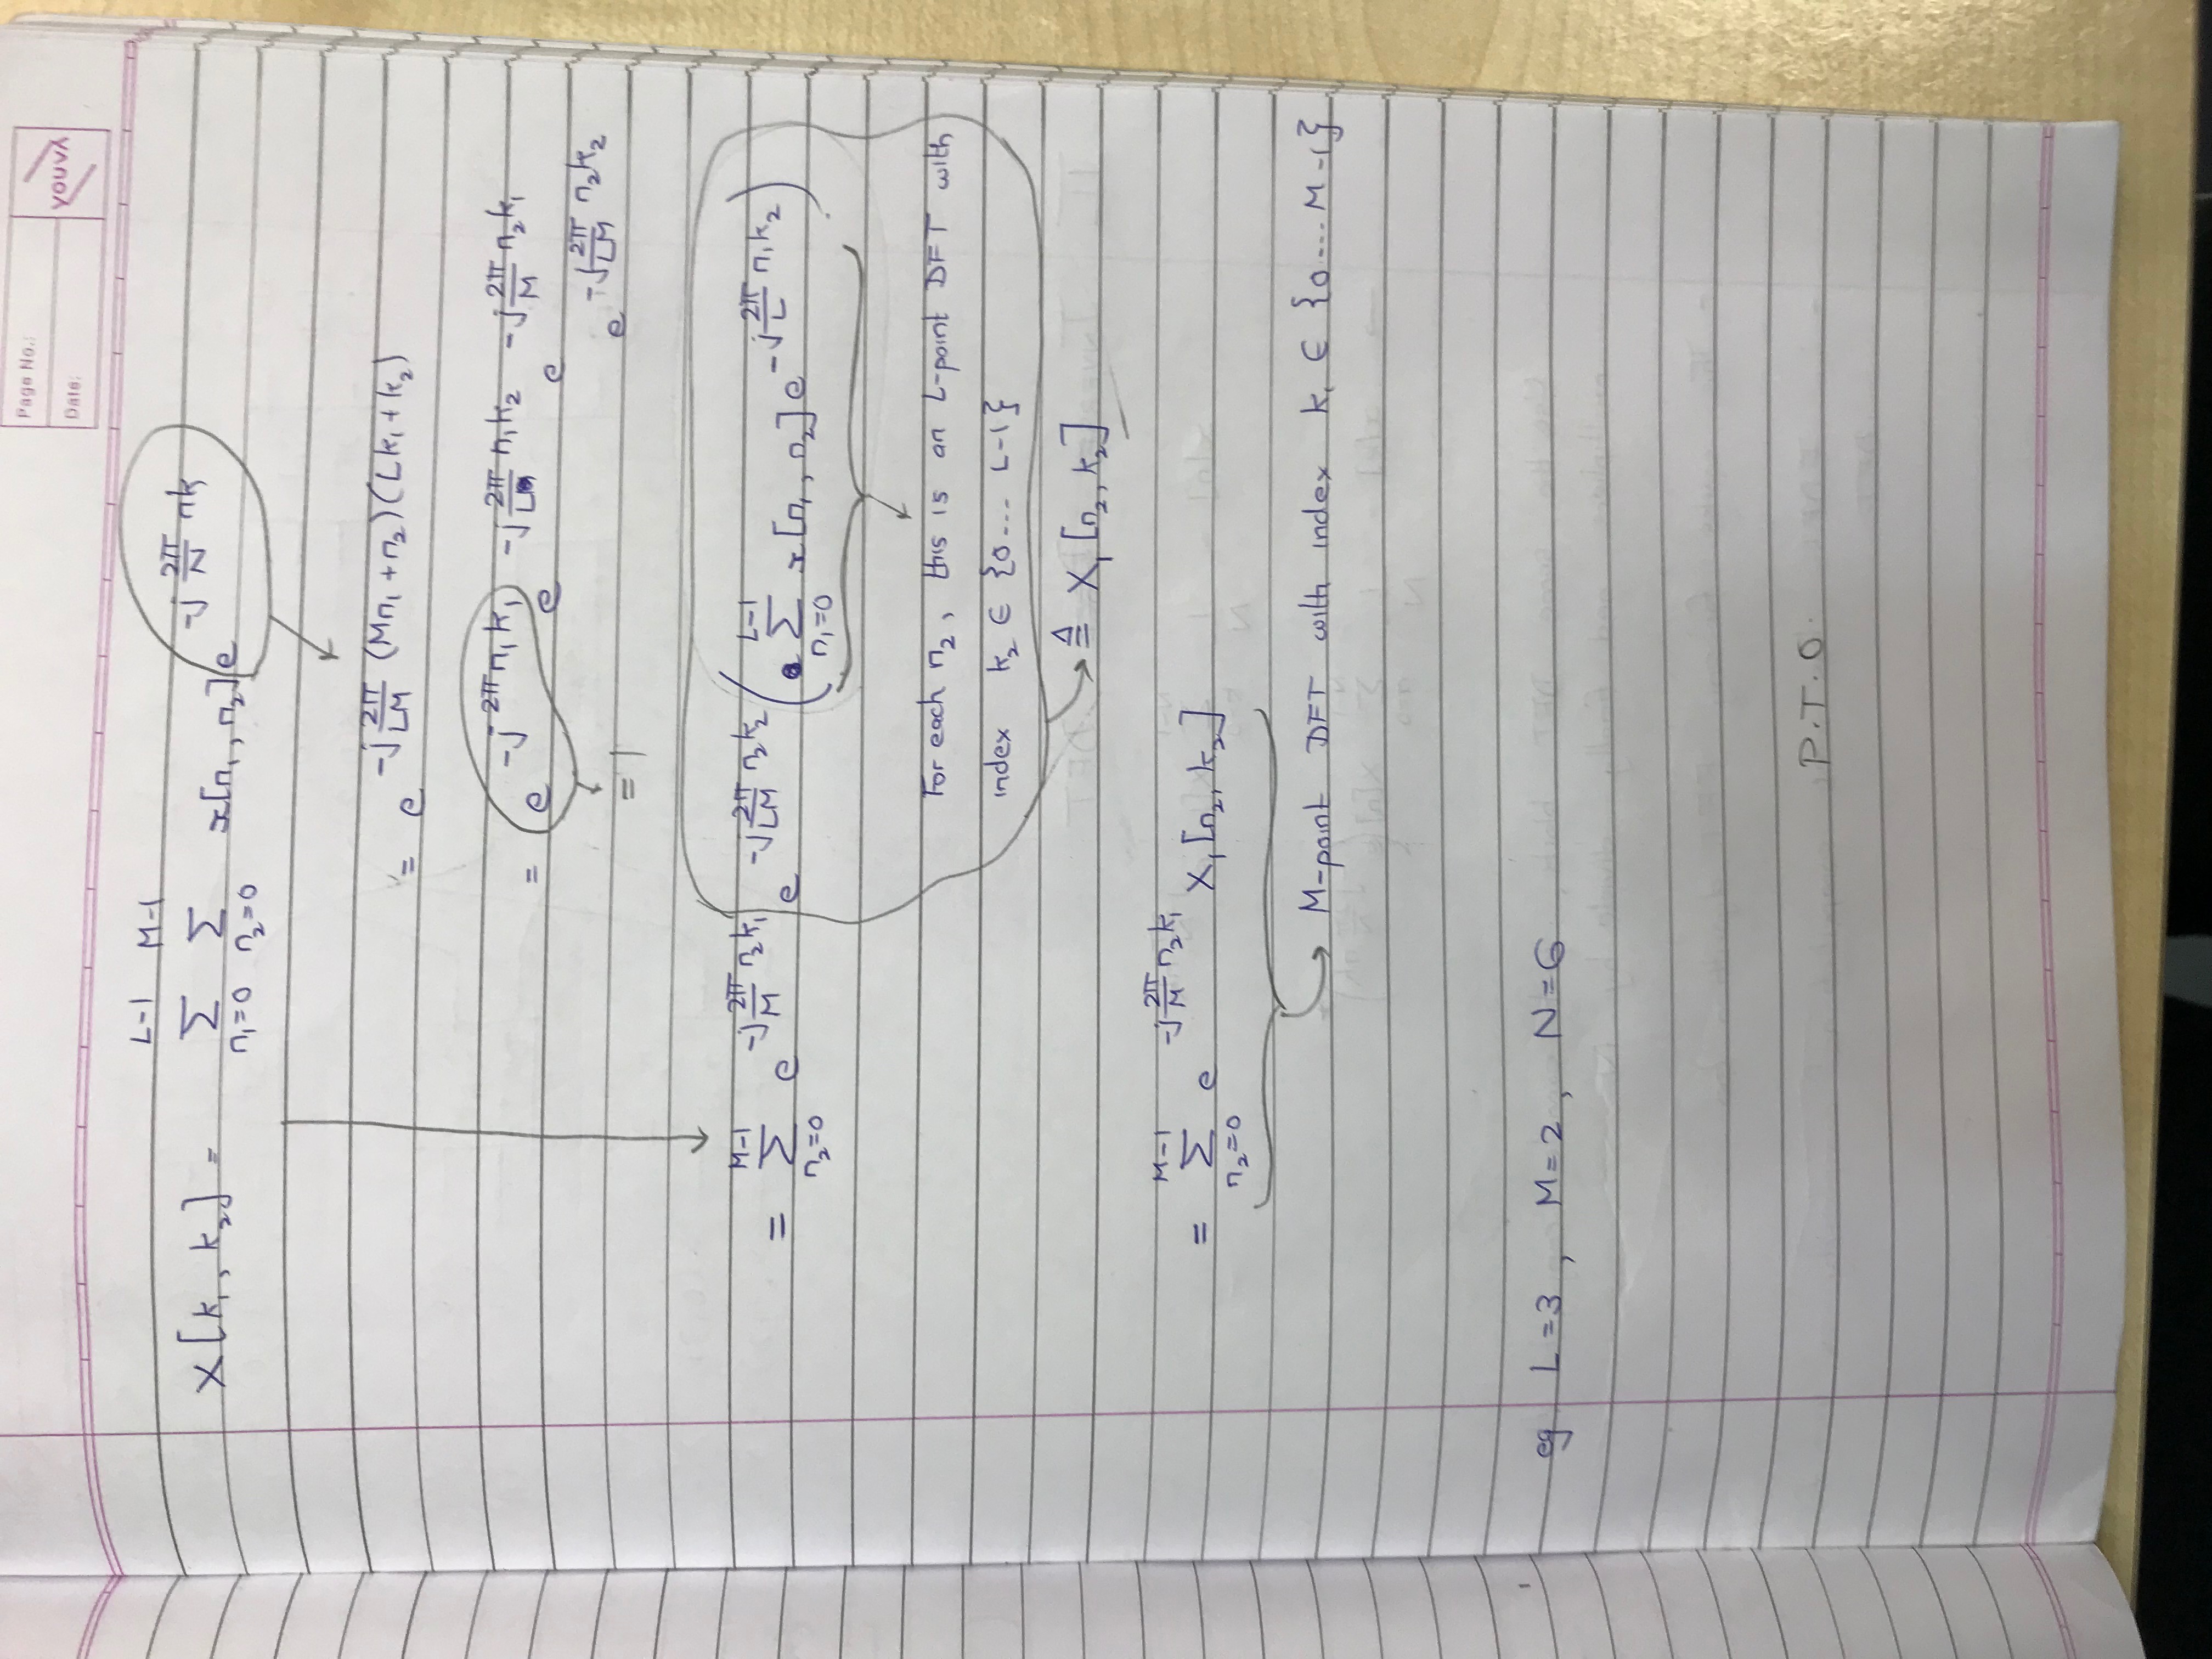 Page No.:
Date:
youva
X[k₁, k₂] = Σ_{n₁=0}^{L-1} Σ_{n₂=0}^{M-1} x[n₁, n₂] e^{-j 2π/N nk}
= e^{-j 2π/LM (Mn₁ + n₂)(Lk₁ + k₂)}
= e^{-j 2π n₁k₁} e^{-j 2π/L n₁k₂} e^{-j 2π/M n₂k₁}
e^{-j 2π/LM n₂k₂}
= 1
= Σ_{n₂=0}^{M-1} e^{-j 2π/M n₂k₁} e^{-j 2π/LM n₂k₂} ( Σ_{n₁=0}^{L-1} x[n₁, n₂] e^{-j 2π/L n₁k₂} )
For each n₂, this is an L-point DFT with
index k₂ ∈ {0... L-1}
≜ X₁[n₂, k₂]
= Σ_{n₂=0}^{M-1} e^{-j 2π/M n₂k₁} X₁[n₂, k₂]
M-point DFT with index k₁ ∈ {0... M-1}
eg L=3, M=2, N=6
P.T.O.